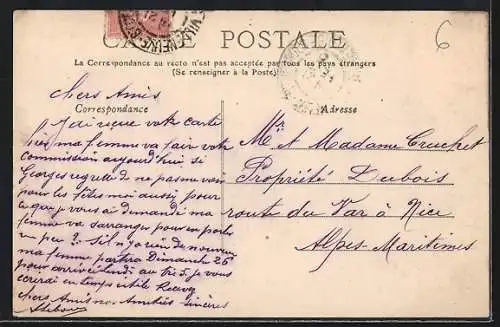 CARTE POSTALE
La Correspondance au recto n'est pas acceptée par tous les pays étrangers
(Se renseigner à la Poste)
Correspondance
Adresse
6
chers Amis
J'ai reçue votre carte
hier ma femme va fair votre
commission aujourd'hui si
Georges regrette de ne pas me voir
pour les fêtes moi aussi pour
ce que je vous ai demandé ma
femme va s'arranger pour en porter
un peu ?. s'il n'y a rien de nouveau
ma femme partira Dimanche 26
pour arrivée lundi au tre 5. je vous
ecrirai en temps utile Recevez
chers Amis nos Amitiés sincères
Mr et Madame Cruchet
Propriété Dubois
route du Var à Nice
Alpes-Maritimes